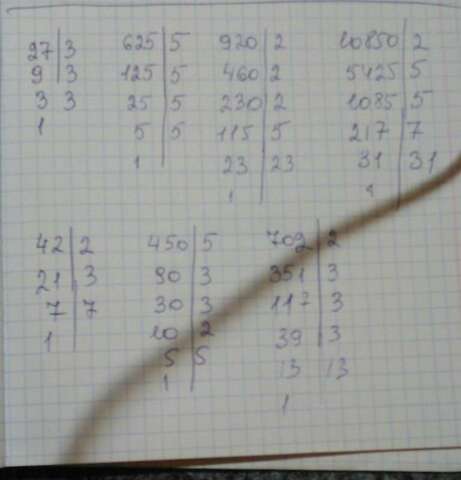 27 | 3
9 | 3
3 | 3
1
625 | 5
125 | 5
25 | 5
5 | 5
1
920 | 2
460 | 2
230 | 2
115 | 5
23 | 23
1
10850 | 2
5425 | 5
1085 | 5
217 | 7
31 | 31
1
42 | 2
21 | 3
7 | 7
1
450 | 5
90 | 3
30 | 3
10 | 2
5 | 5
1
702 | 2
351 | 3
117 | 3
39 | 3
13 | 13
1